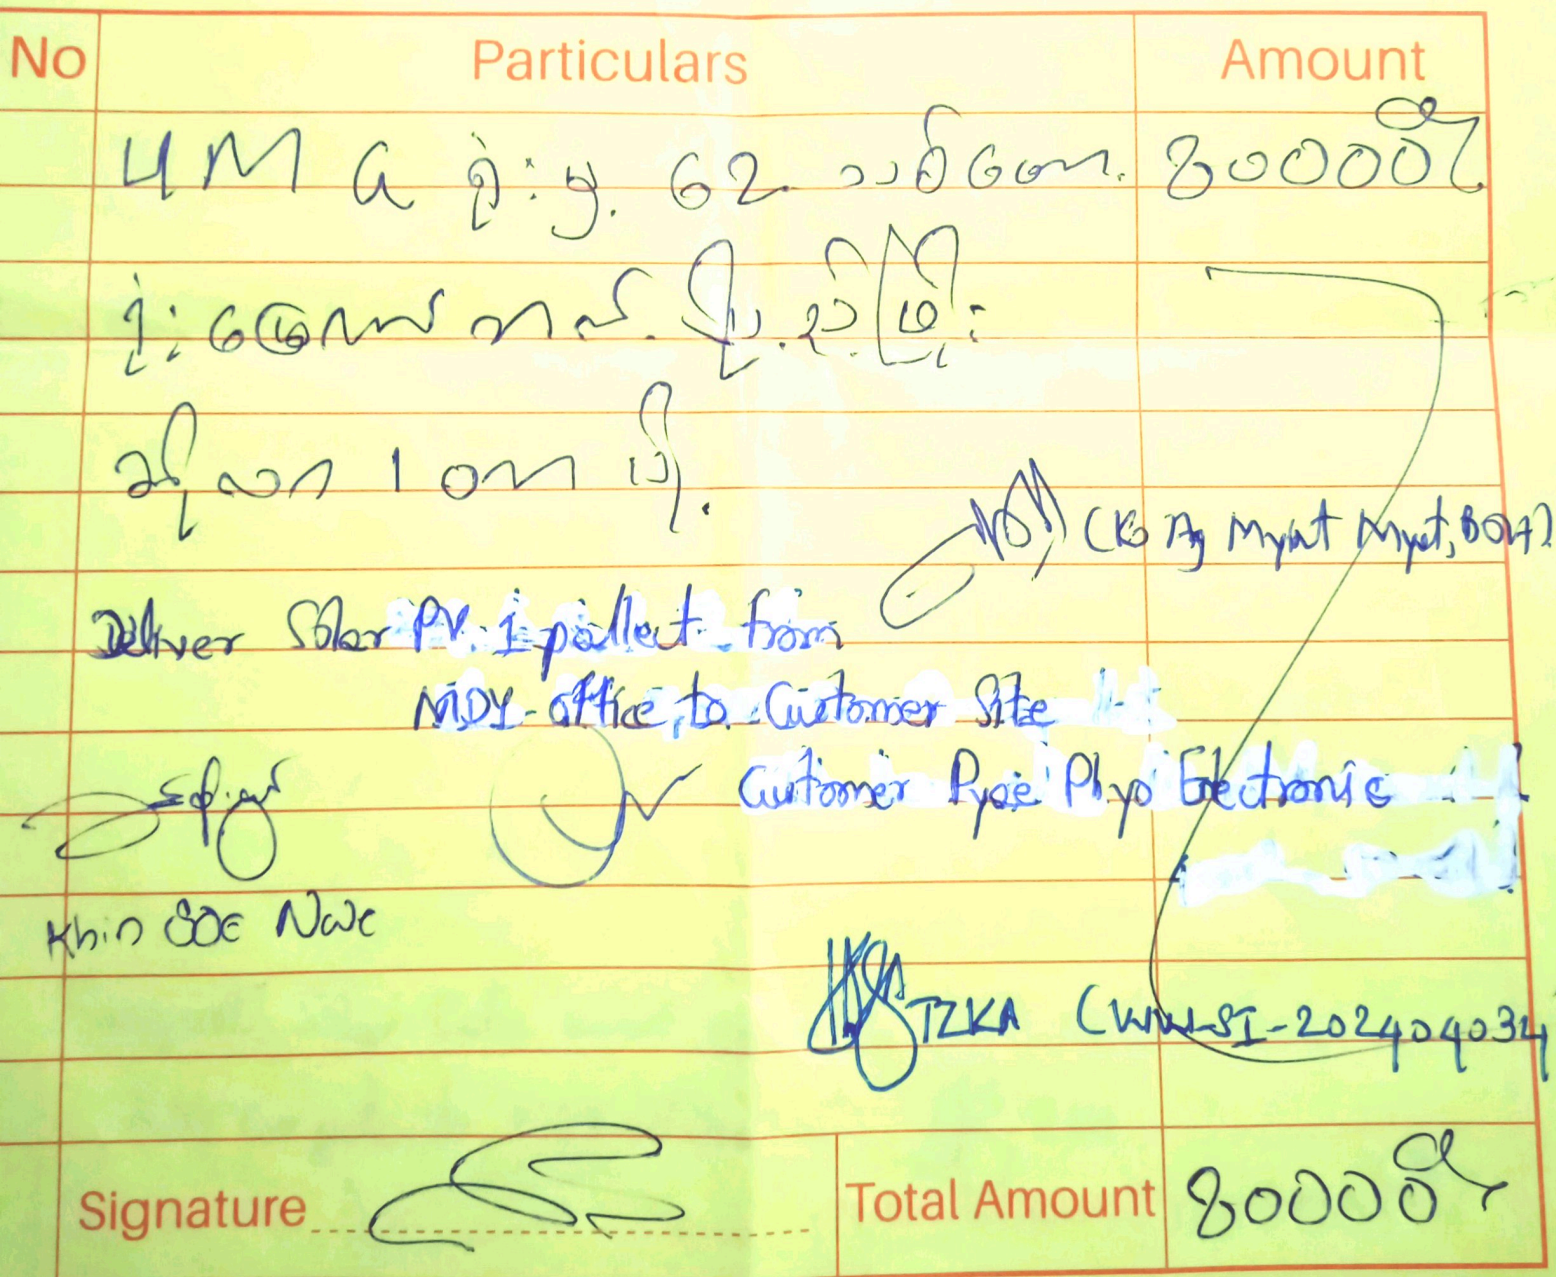 No Particulars Amount
UMG ရုံးမှ 62 သစ်တော 80000ိ/
ရုံးထောက် ဘယ်
ဆိုလာ 1 တာ ပို့.
(KO Ag Myint Myat, BOH)
Deliver Solar PV. 1 pallet from
MDY-office, to Customer Site
Customer Pyae Phyo Electronic
Khin SOE Nwe
TZKA (WWLSI-202404034
Signature Total Amount 80000ိ/